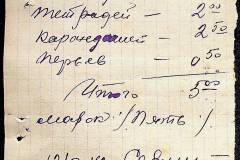 Тетрадей — 2 00
Карандашей — 2 50
Перьев — 0 50
Итого 5 00
марок /Пять/